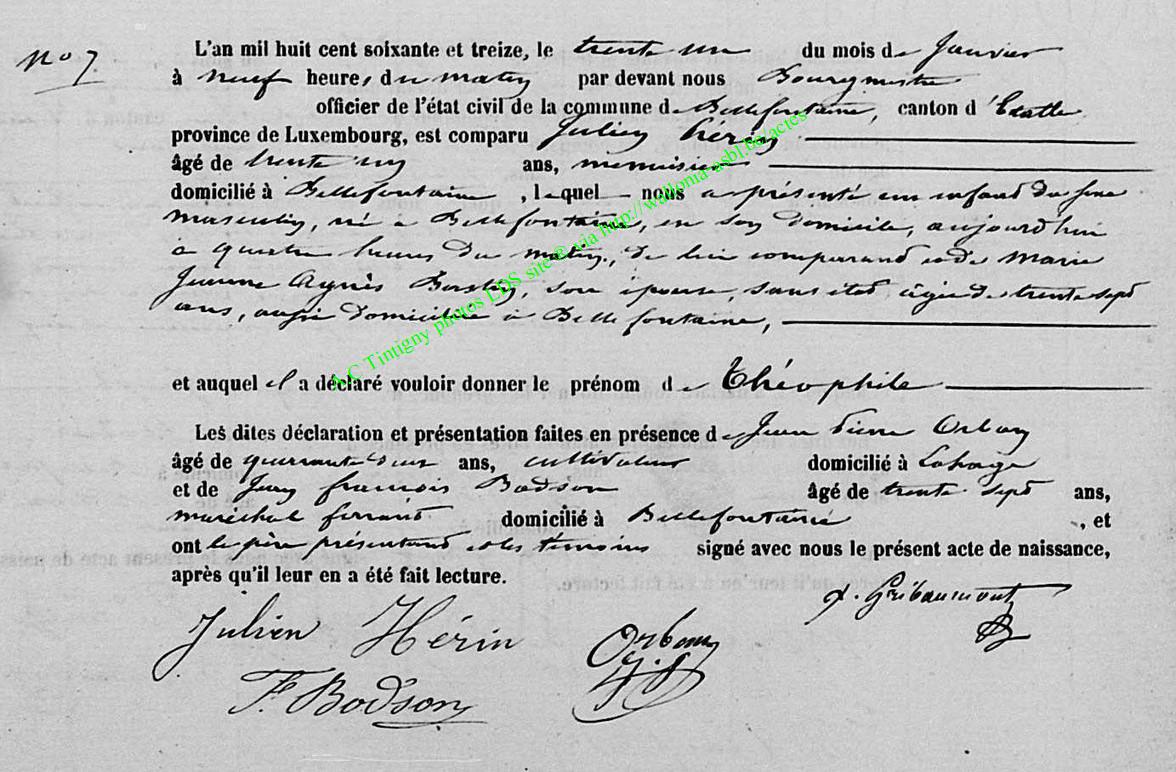 No 7
L'an mil huit cent soixante et treize, le trente un du mois de Janvier
à neuf heures du matin par devant nous Bourgmestre
officier de l'état civil de la commune de Bellefontaine, canton d'Etalle
province de Luxembourg, est comparu Julien Herin
âgé de trente un ans, menuisier
domicilié à Bellefontaine, lequel nous a présenté un enfant du sexe
masculin, né à Bellefontaine, en son domicile, aujourd'hui
à quatre heures du matin, de lui comparant et de Marie
Jeanne Agnès Bastin, son épouse, sans état, âgée de trente sept
ans, aussi domiciliée à Bellefontaine,
et auquel il a déclaré vouloir donner le prénom de Théophile
Les dites déclaration et présentation faites en présence de Jean Pierre Orban
âgé de quarante deux ans, cultivateur domicilié à Lahage
et de Jean françois Bodson âgé de trente sept ans,
maréchal ferrant domicilié à Bellefontaine, et
ont le père présentant et les témoins signé avec nous le présent acte de naissance,
après qu'il leur en a été fait lecture.
Julien Hérin Orban J.P. Gribaumont
F. Bodson
A.C Tintigny photos LDS site® via http://wallonia-asbl.be/actes